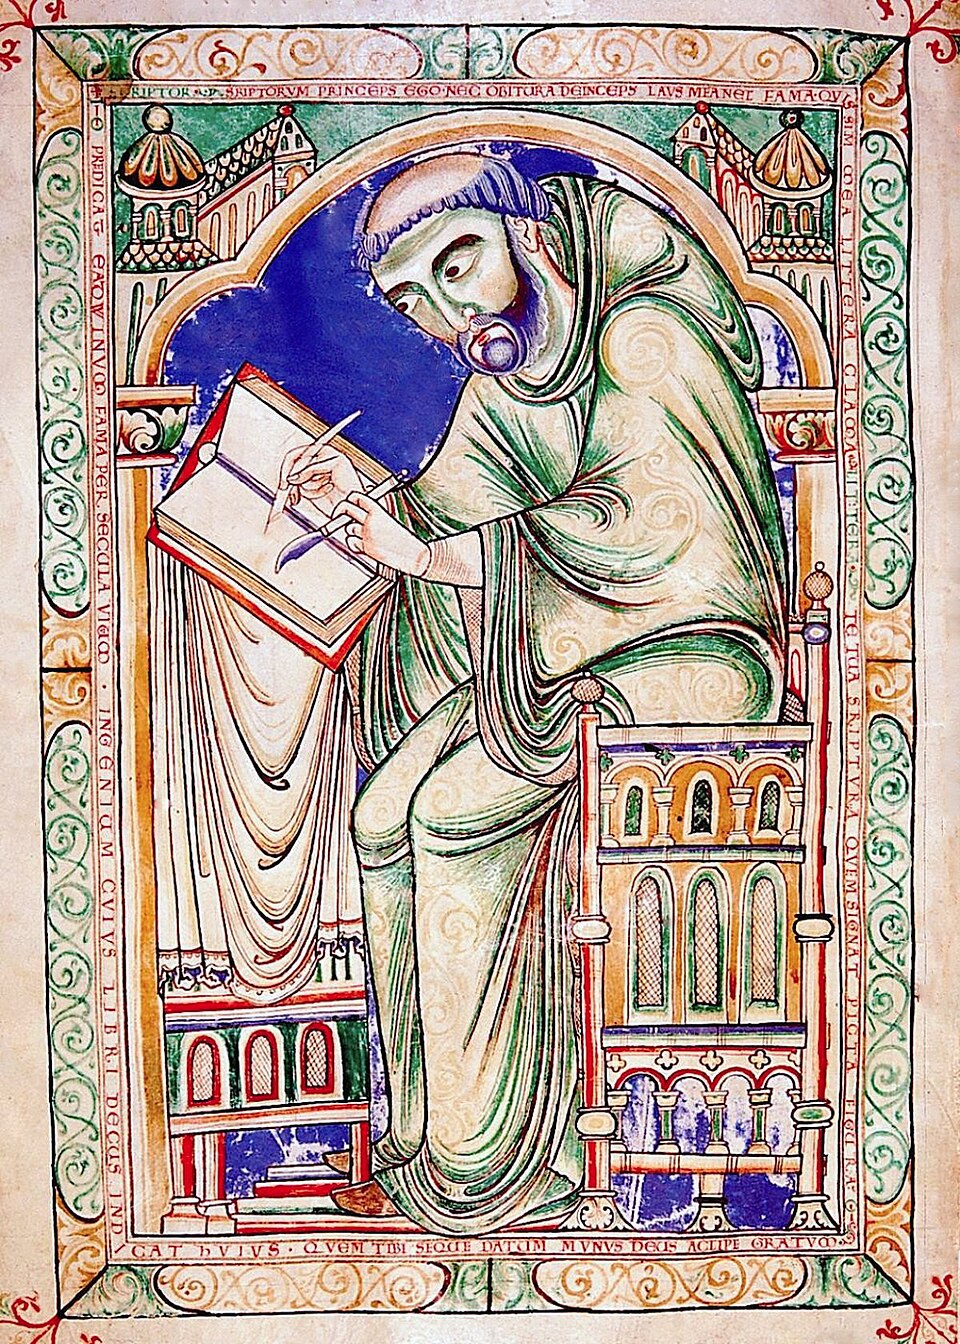 SRIPTOR SRIPTORVM PRINCEPS EGO NEC OBITURA DEINCEPS LAVS MEA NEC FAMA. QVI
SSIM MEA LITTERA CLAMA LITTERA. TE TUA SRIPTVRA QVEM SIGNAT PICTA FIGURA.
PREDICAT EADWINVM FAMA PER SECULA VIVVM · INGENIUM CVIVS LIBRI DECUS INDI
CAT HVIVS · QVEM TIBI SEQVE DATUM MVNVS DEVS ACCIPE GRATVM